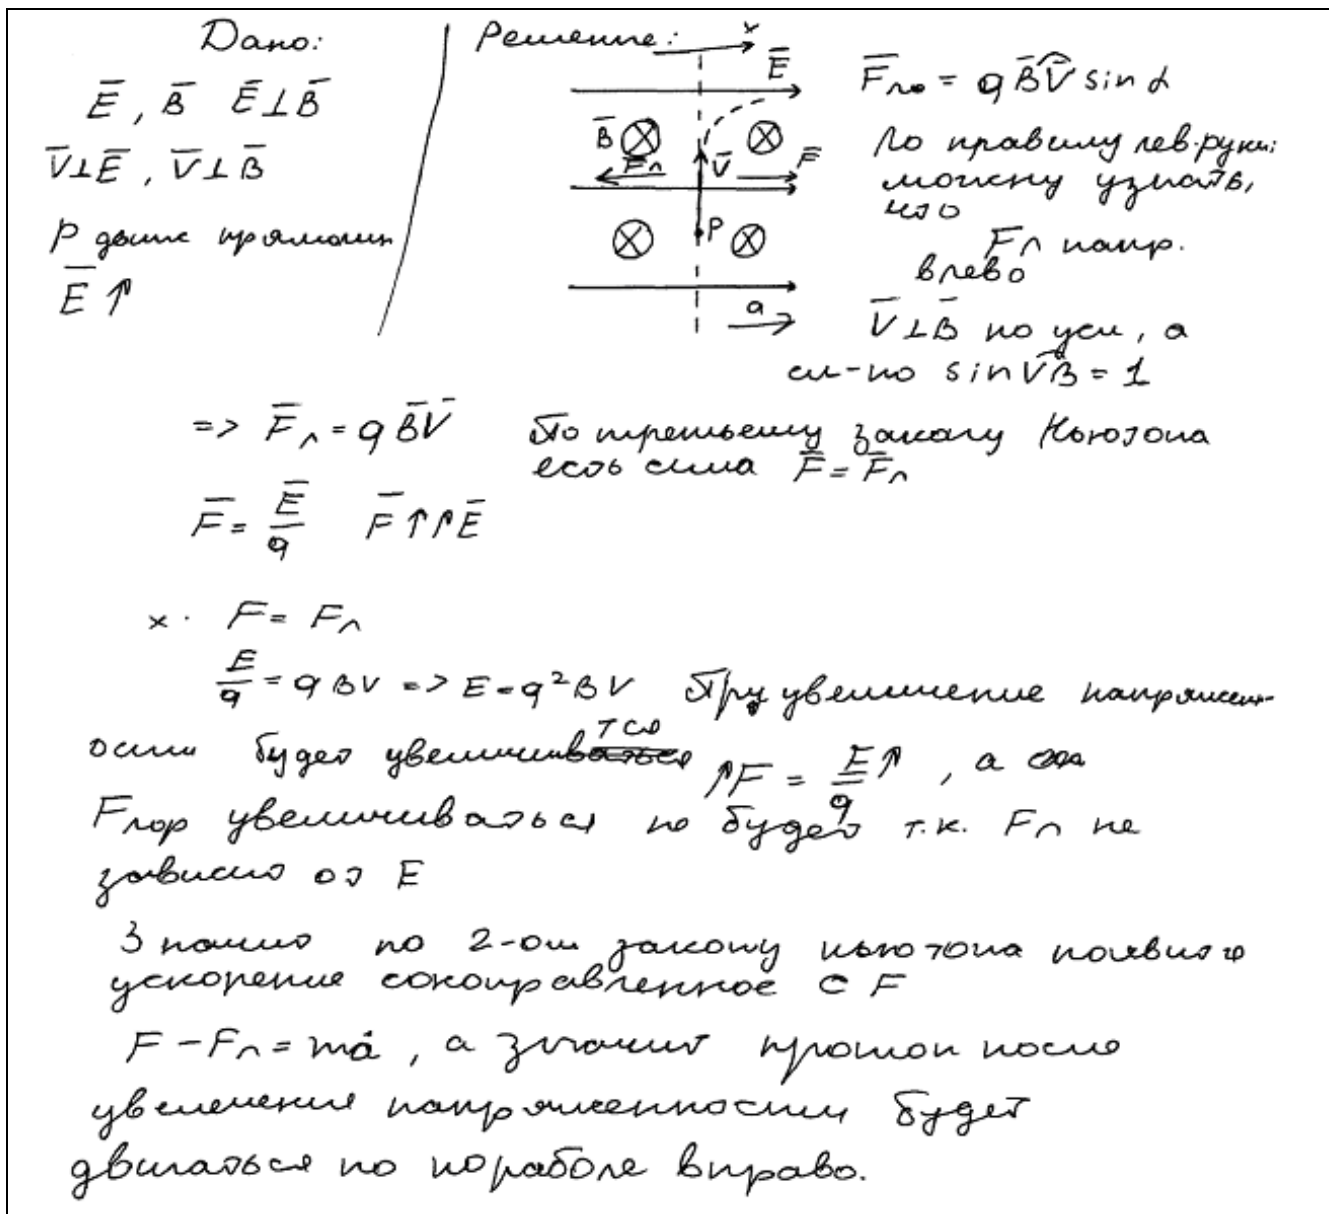 Дано:
E̅, B̅  E̅⊥B̅
V̅⊥E̅, V̅⊥B̅
P движ прямолин
E̅↑
Решение:
x
E̅
B̅
F̅л
V̅
F̅
P
a
F̅ло = qB̅V̅ sin α
По правилу лев. руки:
можну узнать,
что
Fл напр.
влево
V̅⊥B̅ по усл, а
сл-но sin VB = 1
=> F̅л = qB̅V̅  По третьему закону Ньютона
есть сила F̅ = F̅л
F̅ = E̅/q  F̅↑↑E̅
x. F = Fл
E/q = qBV => E = q²BV  При увеличение напряжен-
ости будет увеличиватся ↑F = E↑/q, а
Fлор увеличиваться не будет т.к. Fл не
зависит от E
Значит по 2-ом закону ньютона появится
ускорение сонаправленное с F
F - Fл = ma, а значит протон после
увеличения напряженности будет
двигаться по пораболе вправо.